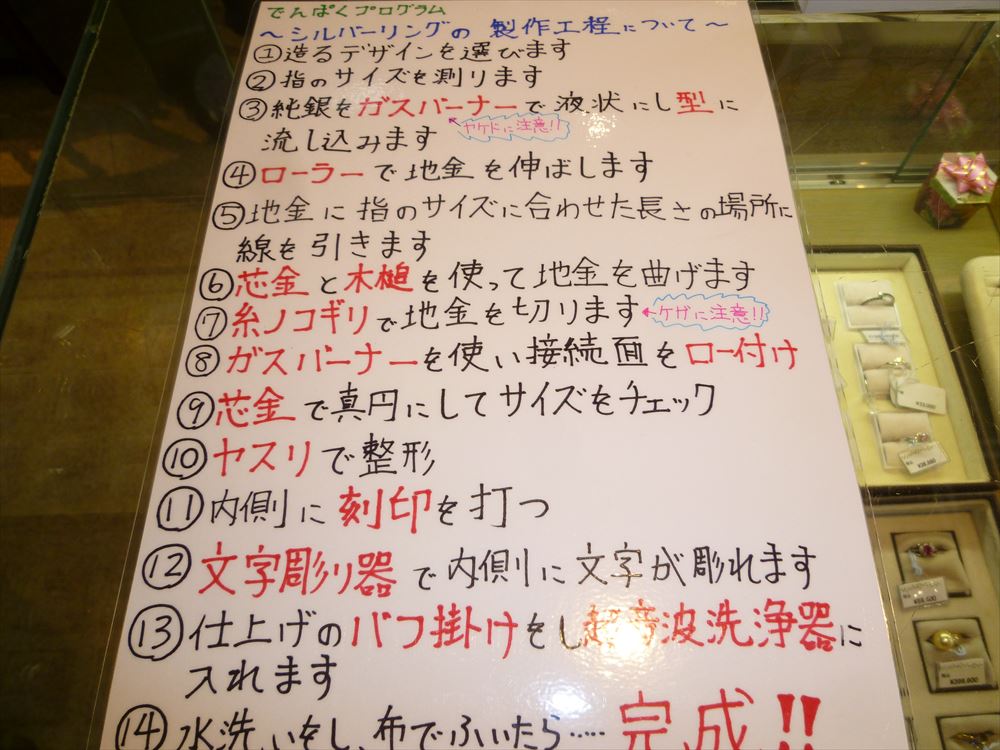 でんぱくプログラム
～シルバーリングの製作工程について～
①造るデザインを選びます
②指のサイズを測ります
③純銀をガスバーナーで液状にし型に
ヤケドに注意!!
流し込みます
④ローラーで地金を伸ばします
⑤地金に指のサイズに合わせた長さの場所に
線を引きます
⑥芯金と木槌を使って地金を曲げます
⑦糸ノコギリで地金を切ります
ケガに注意!!
⑧ガスバーナーを使い接続面をロー付け
⑨芯金で真円にしてサイズをチェック
⑩ヤスリで整形
⑪内側に刻印を打つ
⑫文字彫り器で内側に文字が彫れます
⑬仕上げのバフ掛けをし超音波洗浄器に
入れます
⑭水洗いをし、布でふいたら……完成!!